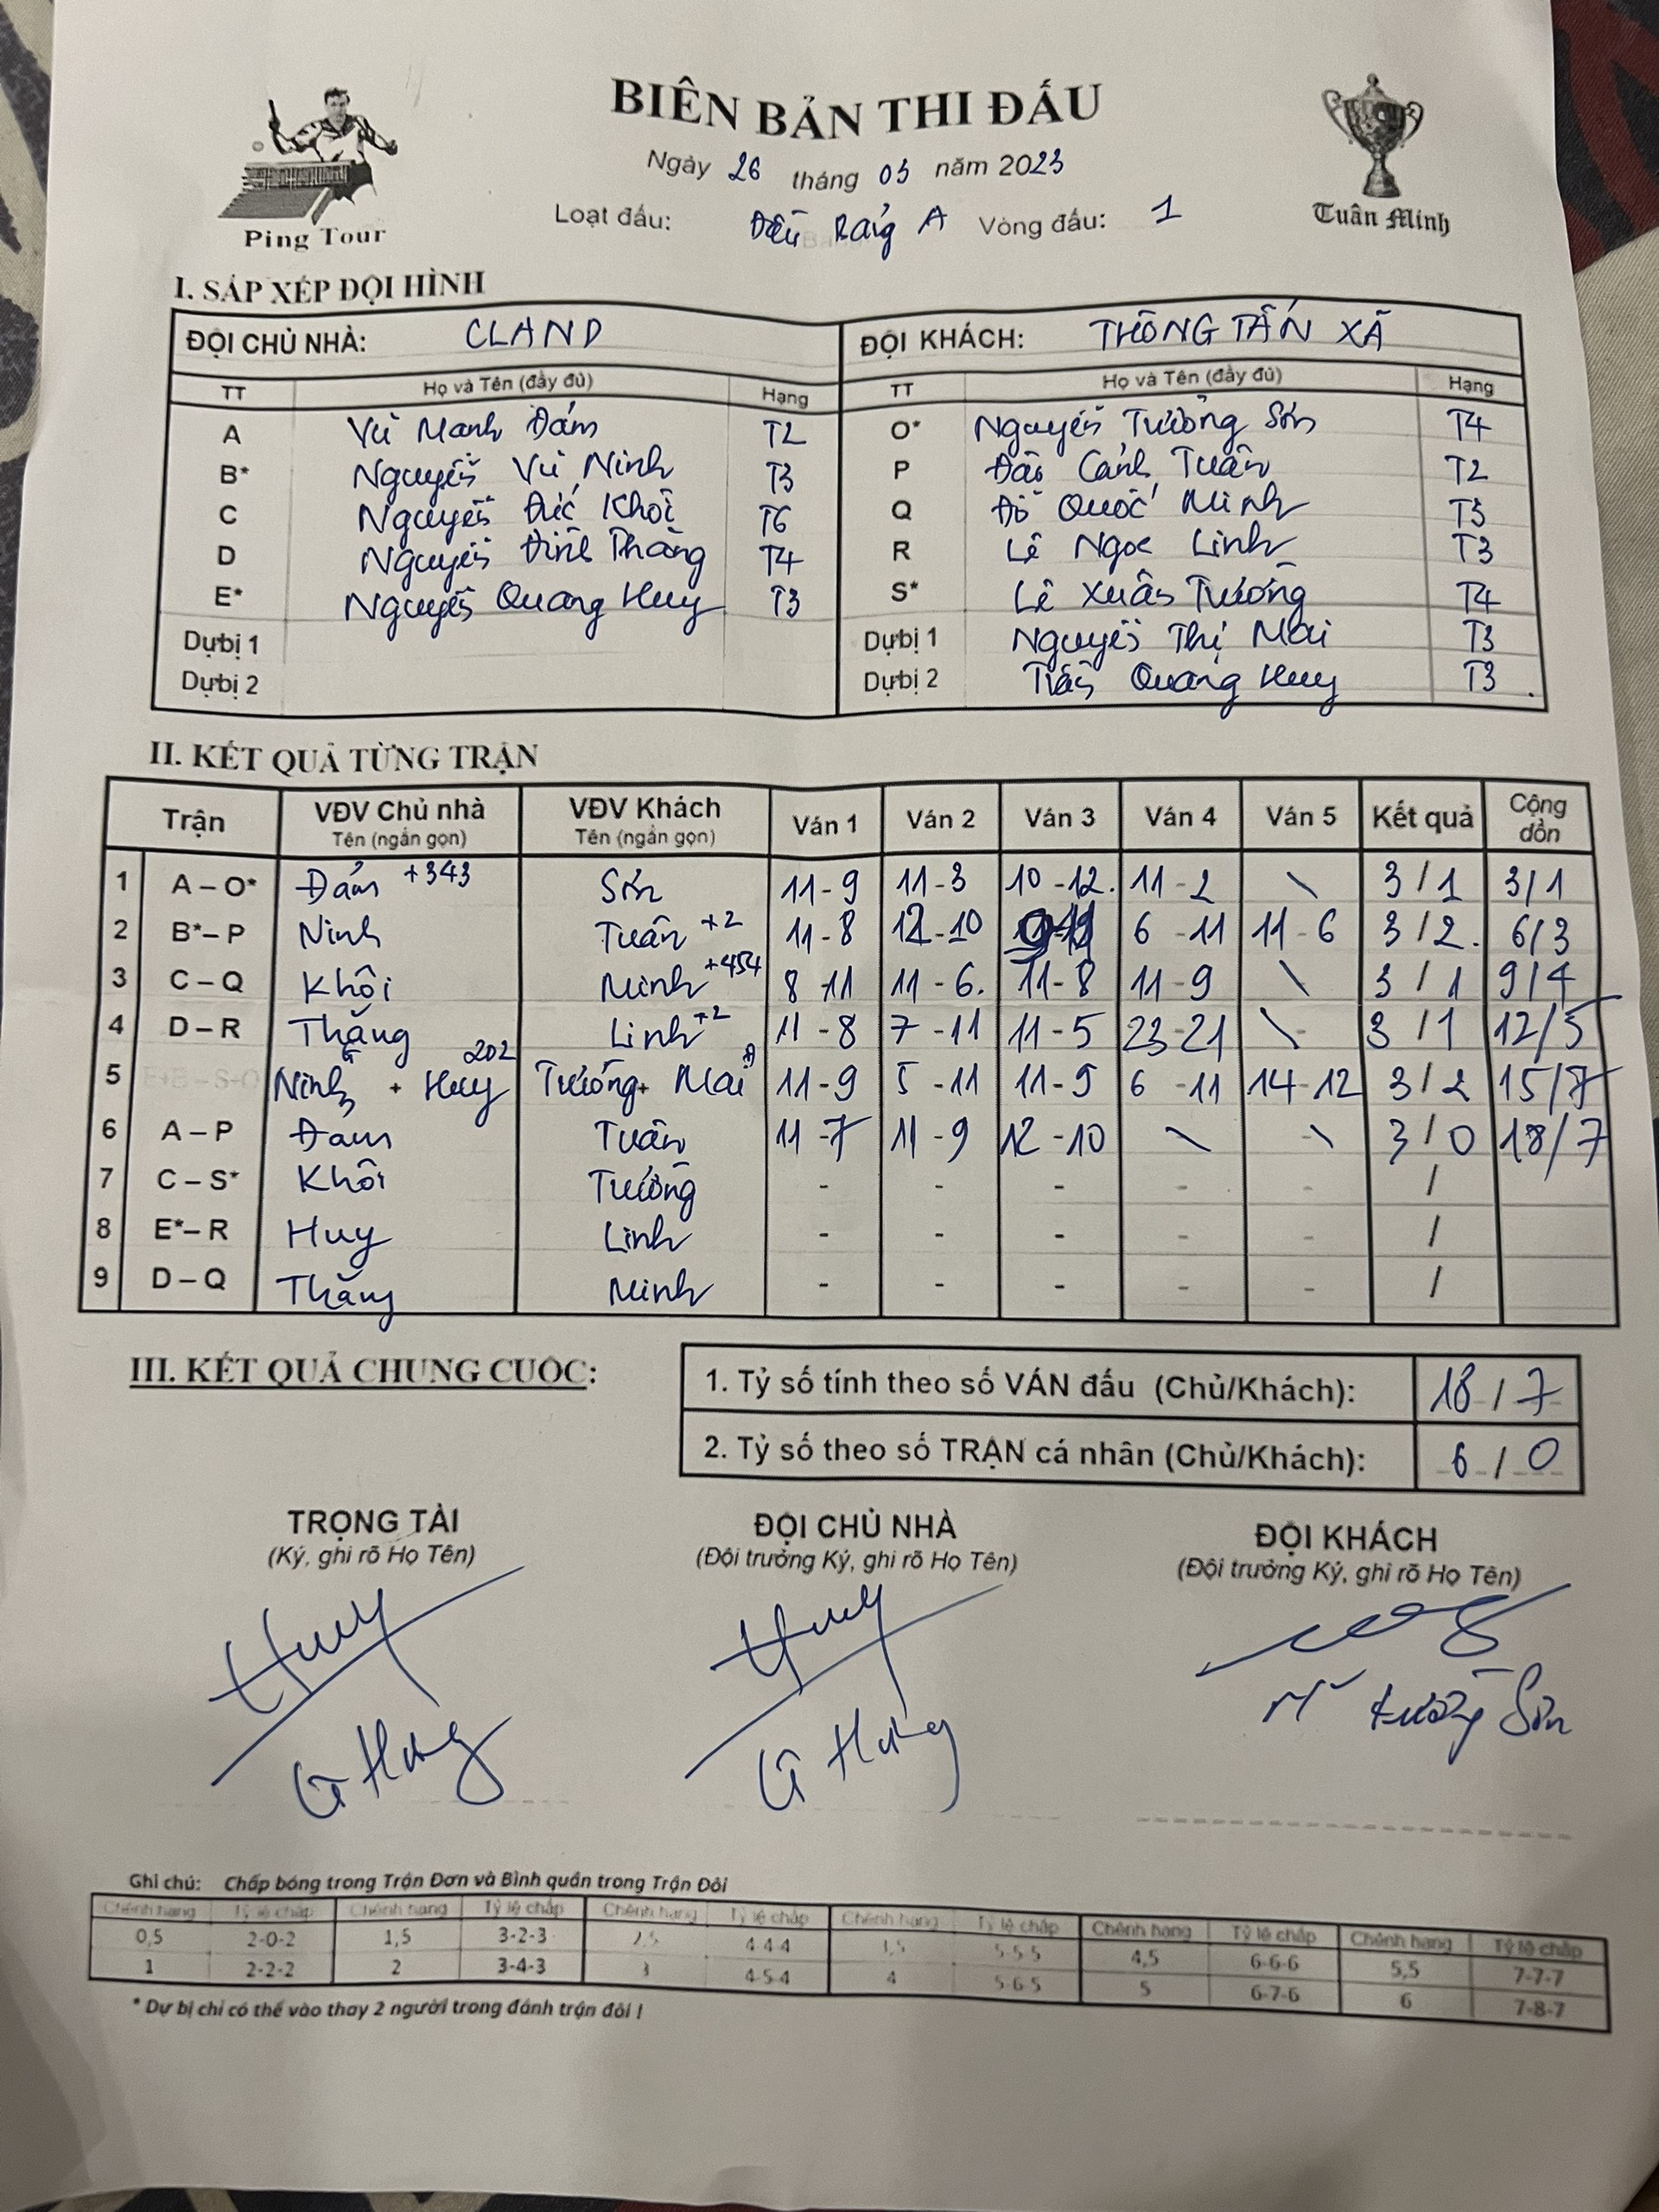 BIÊN BẢN THI ĐẤU
Ngày 26 tháng 03 năm 2023
Loạt đấu: Đấu Bảng A Vòng đấu: 1
Ping Tour
Tuân Minh
I. SẮP XẾP ĐỘI HÌNH
ĐỘI CHỦ NHÀ: CLAND ĐỘI KHÁCH: THÔNG TẤN XÃ
TT Họ và Tên (đầy đủ) Hạng TT Họ và Tên (đầy đủ) Hạng
A Vũ Mạnh Đảm T2 O* Nguyễn Trường Sơn T4
B* Nguyễn Vũ Ninh T3 P Đào Cảnh Tuân T2
C Nguyễn Đức Khôi T6 Q Đỗ Quốc Minh T3
D Nguyễn Đình Thắng T4 R Lê Ngọc Linh T3
E* Nguyễn Quang Huy T3 S* Lê Xuân Trường T4
Dự bị 1 Dự bị 1 Nguyễn Thị Mai T3
Dự bị 2 Dự bị 2 Trần Quang Huy T3
II. KẾT QUẢ TỪNG TRẬN
Trận VĐV Chủ nhà VĐV Khách Ván 1 Ván 2 Ván 3 Ván 4 Ván 5 Kết quả Cộng dồn
Tên (ngắn gọn) Tên (ngắn gọn)
1 A – O* Đảm +343 Sơn 11-9 11-3 10-12. 11-2 \ 3/1 3/1
2 B* – P Ninh Tuân +2 11-8 12-10 6-11 11-6 3/2. 6/3
3 C – Q Khôi Minh +454 8-11 11-6. 11-8 11-9 \ 3/1 9/4
4 D – R Thắng Linh +2 11-8 7-11 11-5 23-21 \ 3/1 12/5
5 E+B – S+O Ninh + Huy 202 Trường + Mai 11-9 5-11 11-9 6-11 14-12 3/2 15/7
6 A – P Đảm Tuân 11-7 11-9 12-10 \ \ 3/0 18/7
7 C – S* Khôi Trường - - - - - /
8 E* – R Huy Linh - - - - - /
9 D – Q Thắng Minh - - - - - /
III. KẾT QUẢ CHUNG CUỘC:
1. Tỷ số tính theo số VÁN đấu (Chủ/Khách): 18 / 7
2. Tỷ số theo số TRẬN cá nhân (Chủ/Khách): 6 / 0
TRỌNG TÀI ĐỘI CHỦ NHÀ ĐỘI KHÁCH
(Ký, ghi rõ Họ Tên) (Đội trưởng Ký, ghi rõ Họ Tên) (Đội trưởng Ký, ghi rõ Họ Tên)
Huy Huy
Sơn
Ghi chú: Chấp bóng trong Trận Đơn và Bình quân trong Trận Đôi
Chênh hạng Tỷ lệ chấp Chênh hạng Tỷ lệ chấp Chênh hạng Tỷ lệ chấp Chênh hạng Tỷ lệ chấp Chênh hạng Tỷ lệ chấp Chênh hạng Tỷ lệ chấp
0,5 2-0-2 1,5 3-2-3 2,5 4-4-4 3,5 5-5-5 4,5 6-6-6 5,5 7-7-7
1 2-2-2 2 3-4-3 3 4-5-4 4 5-6-5 5 6-7-6 6 7-8-7
* Dự bị chỉ có thể vào thay 2 người trong đánh trận đôi !